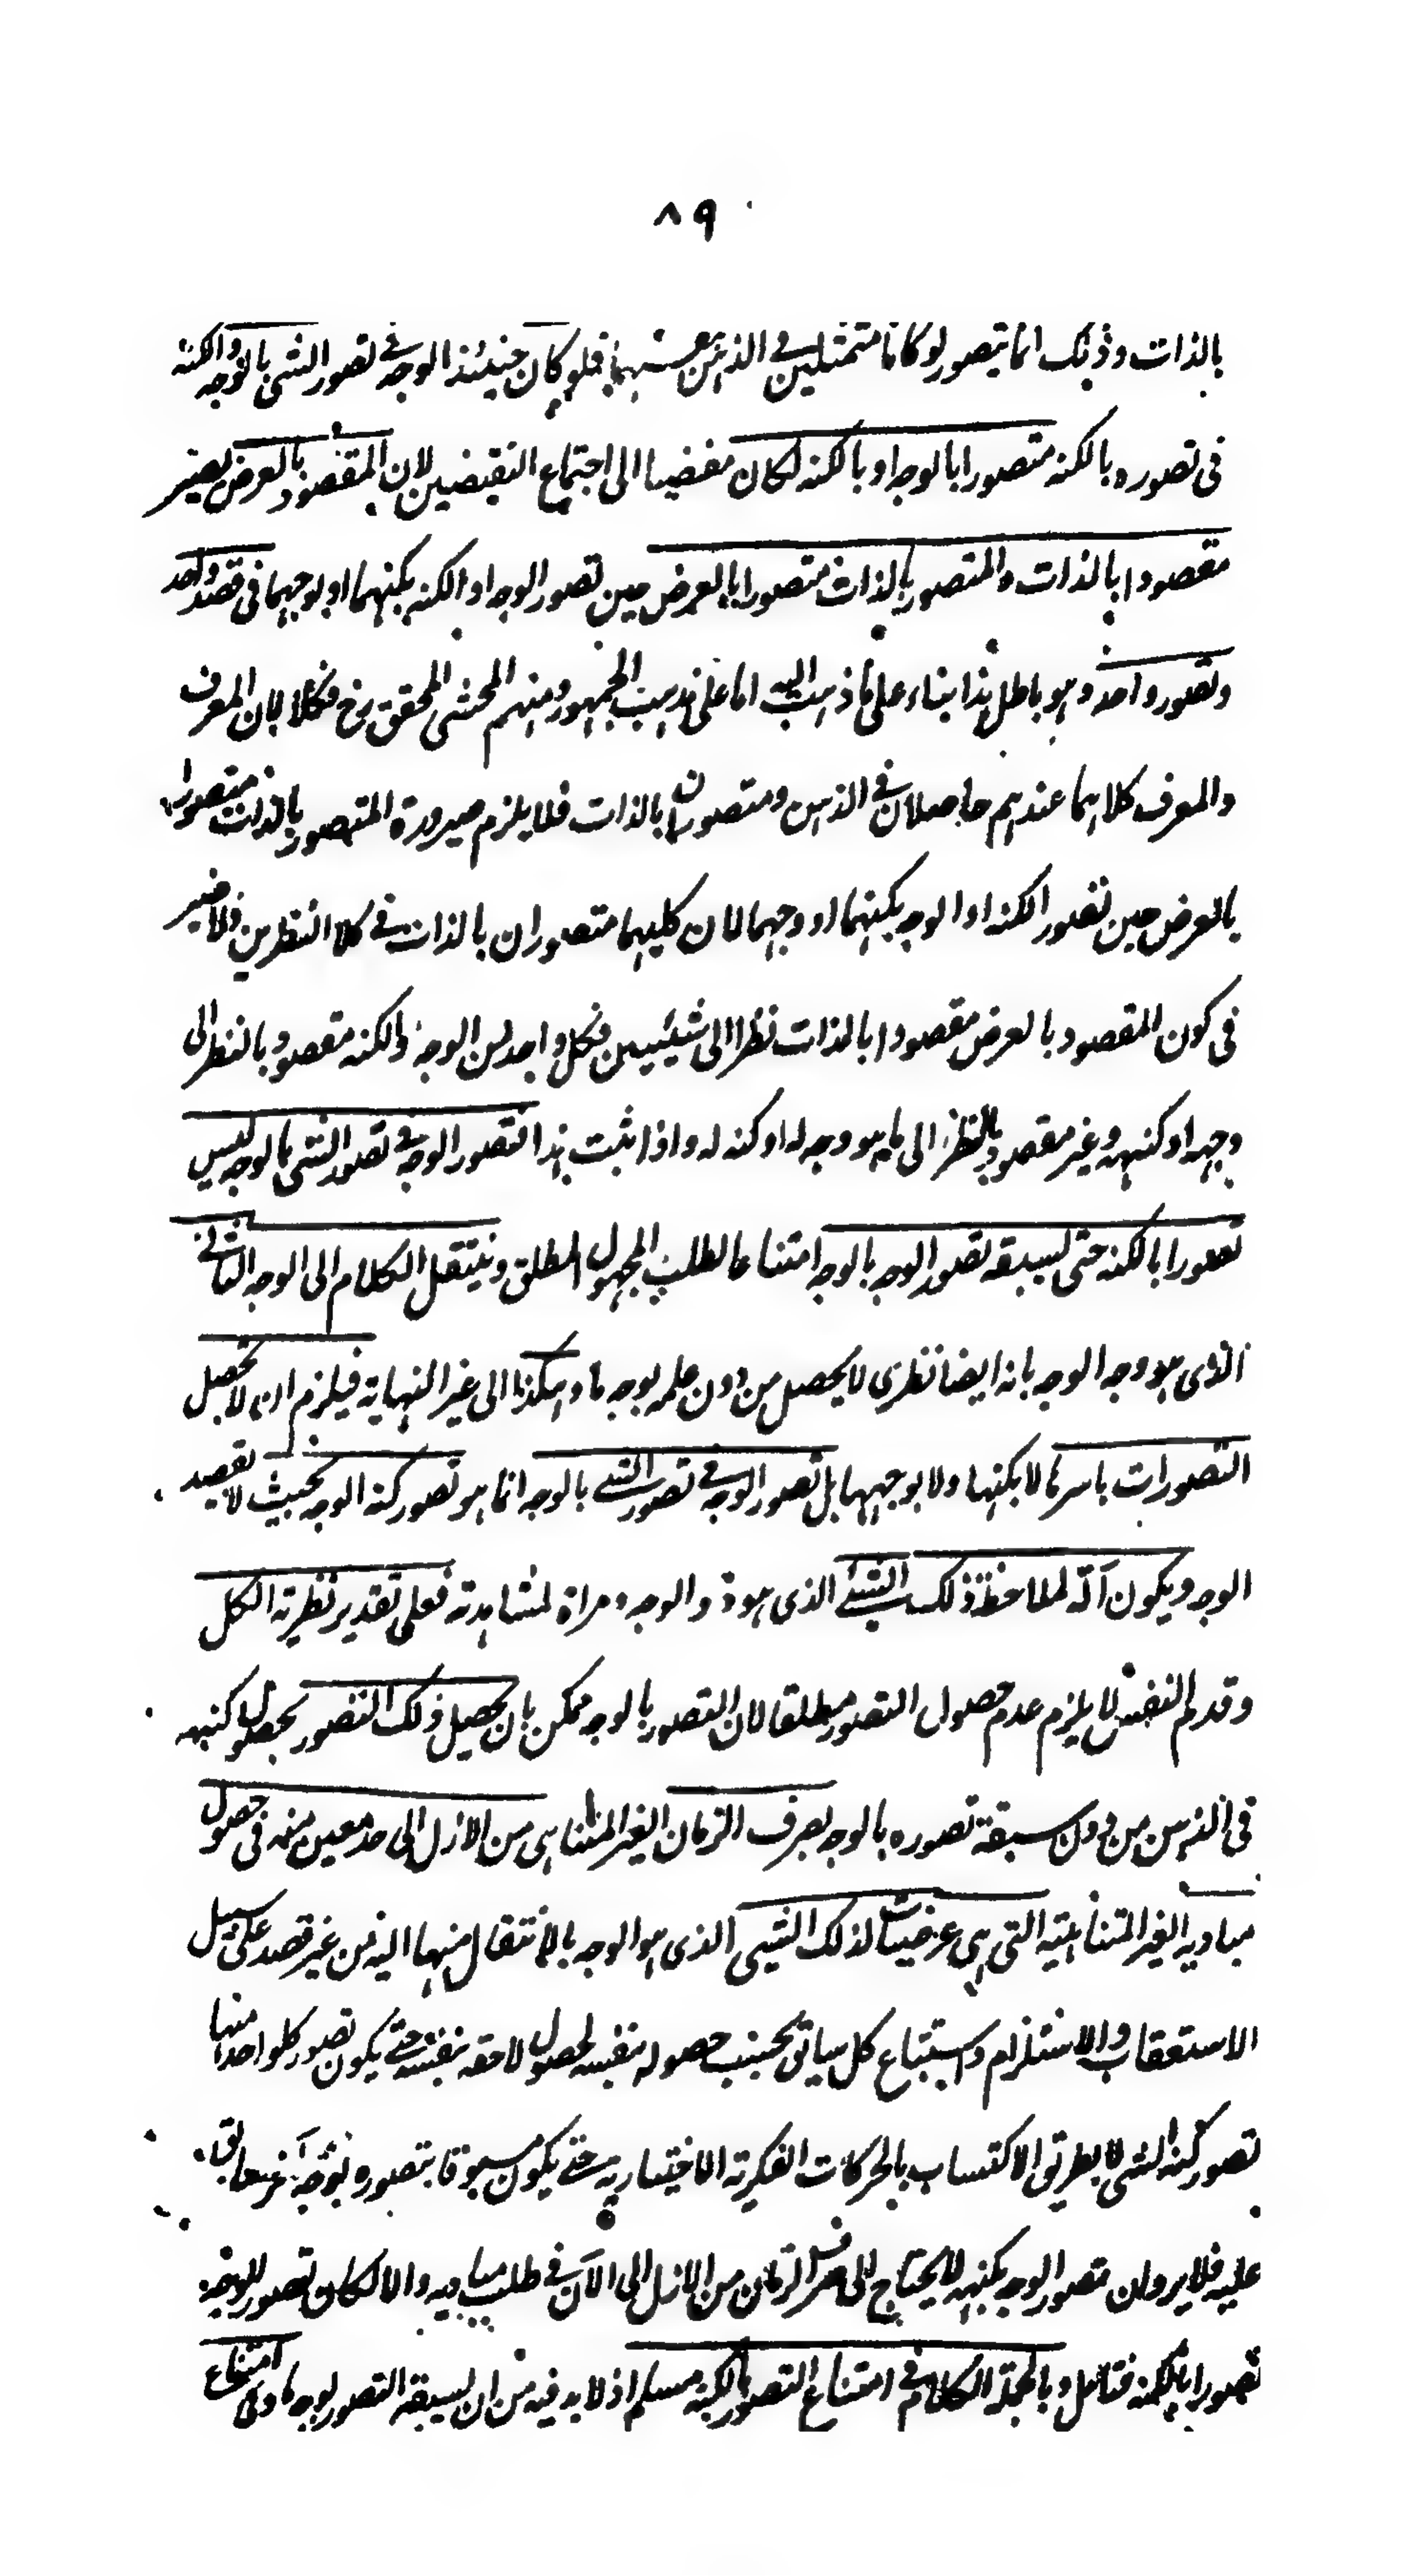 ٨٩
بالذات وذلك انما يتصور لو كانا متمثلين في الذهن فلو كان حينئذ الوجه في تصور الشئ بالوجه والكنه
في تصوره بالكنه متصورا بالوجه او بالكنه لكان مفضيا الى اجتماع النقيضين لان المقصود بالعرض يصير
مقصودا بالذات والمتصور بالذات متصورا بالعرض حين تصور الوجه او الكنه بكنههما او بوجههما في قصد واحد
وتصور واحد وهو باطل هذا بناء على ما ذهب اليه اما على مذهب الجمهور ومنهم المحشى المحقق رح فكلا لان المعرف
والمعرف كلاهما عندهم حاصلان في الذهن ومتصوران بالذات فلا يلزم صيرورة المتصور بالذات متصورا
بالعرض حين تصور الكنه او الوجه بكنههما او وجههما لان كليهما متصوران بالذات في كلا النظرين ولا ضير
في كون المقصود بالعرض مقصودا بالذات نظرا الى شيئين فكل واحد من الوجه والكنه مقصود بالنظر الى
وجهه او كنهه وغير مقصود بالنظر الى ما هو وجه له او كنه له واذا ثبت هذا فتصور الوجه في تصور الشئ بالوجه ليس
تصورا بالكنه حتى يسبقه تصور الوجه بالوجه امتناعا لطلب المجهول المطلق وينتقل الكلام الى الوجه الثاني
الذى هو وجه الوجه بانه ايضا نظرى لا يحصل من دون علمه بوجه ما وهكذا الى غير النهاية فيلزم ان لا تحصل
التصورات باسرها لا بكنهها ولا بوجهها بل تصور الوجه في تصور الشئ بالوجه انما هو تصور كنه الوجه بحيث لا يقصد
الوجه ويكون آلة لملاحظة ذلك الشئ الذى هو ذو الوجه ومراة لمشاهدته فعلى تقدير نظرية الكل
وقدم النفس لا يلزم عدم حصول التصور مطلقا لان التصور بالوجه ممكن بان يحصل ذلك التصور بحصول كنهه
في الذهن من دون سبقة تصوره بالوجه بصرف الزمان الغير المتناهى من الازل الى حد معين منه في حصول
مباديه الغير المتناهية التى هى عرضيات لذلك الشئ الذى هو الوجه بالانتقال منها اليه من غير قصد على سبيل
الاستعقاب والاستلزام واستتباع كل سابق بحسب حصوله بنفسه لحصول لاحقه بنفسه حتى يكون تصور كل واحد منها
تصور كنه الشئ لا بطريق الاكتساب بالحركات الفكرية الاختيارية حتى يكون مسبوقا بتصوره بوجه آخر سابق
عليه فلا يرد ان تصور الوجه بكنهه لا يحتاج الى صرف الزمان من الازل الى الآن في طلب مباديه والا لكان تصور الوجه
تصورا بالكنه فتامل وبالجملة الكلام في امتناع التصور بالكنه مسلم اذ لا بد فيه من ان يسبقه التصور بوجه ما وفى امتناع